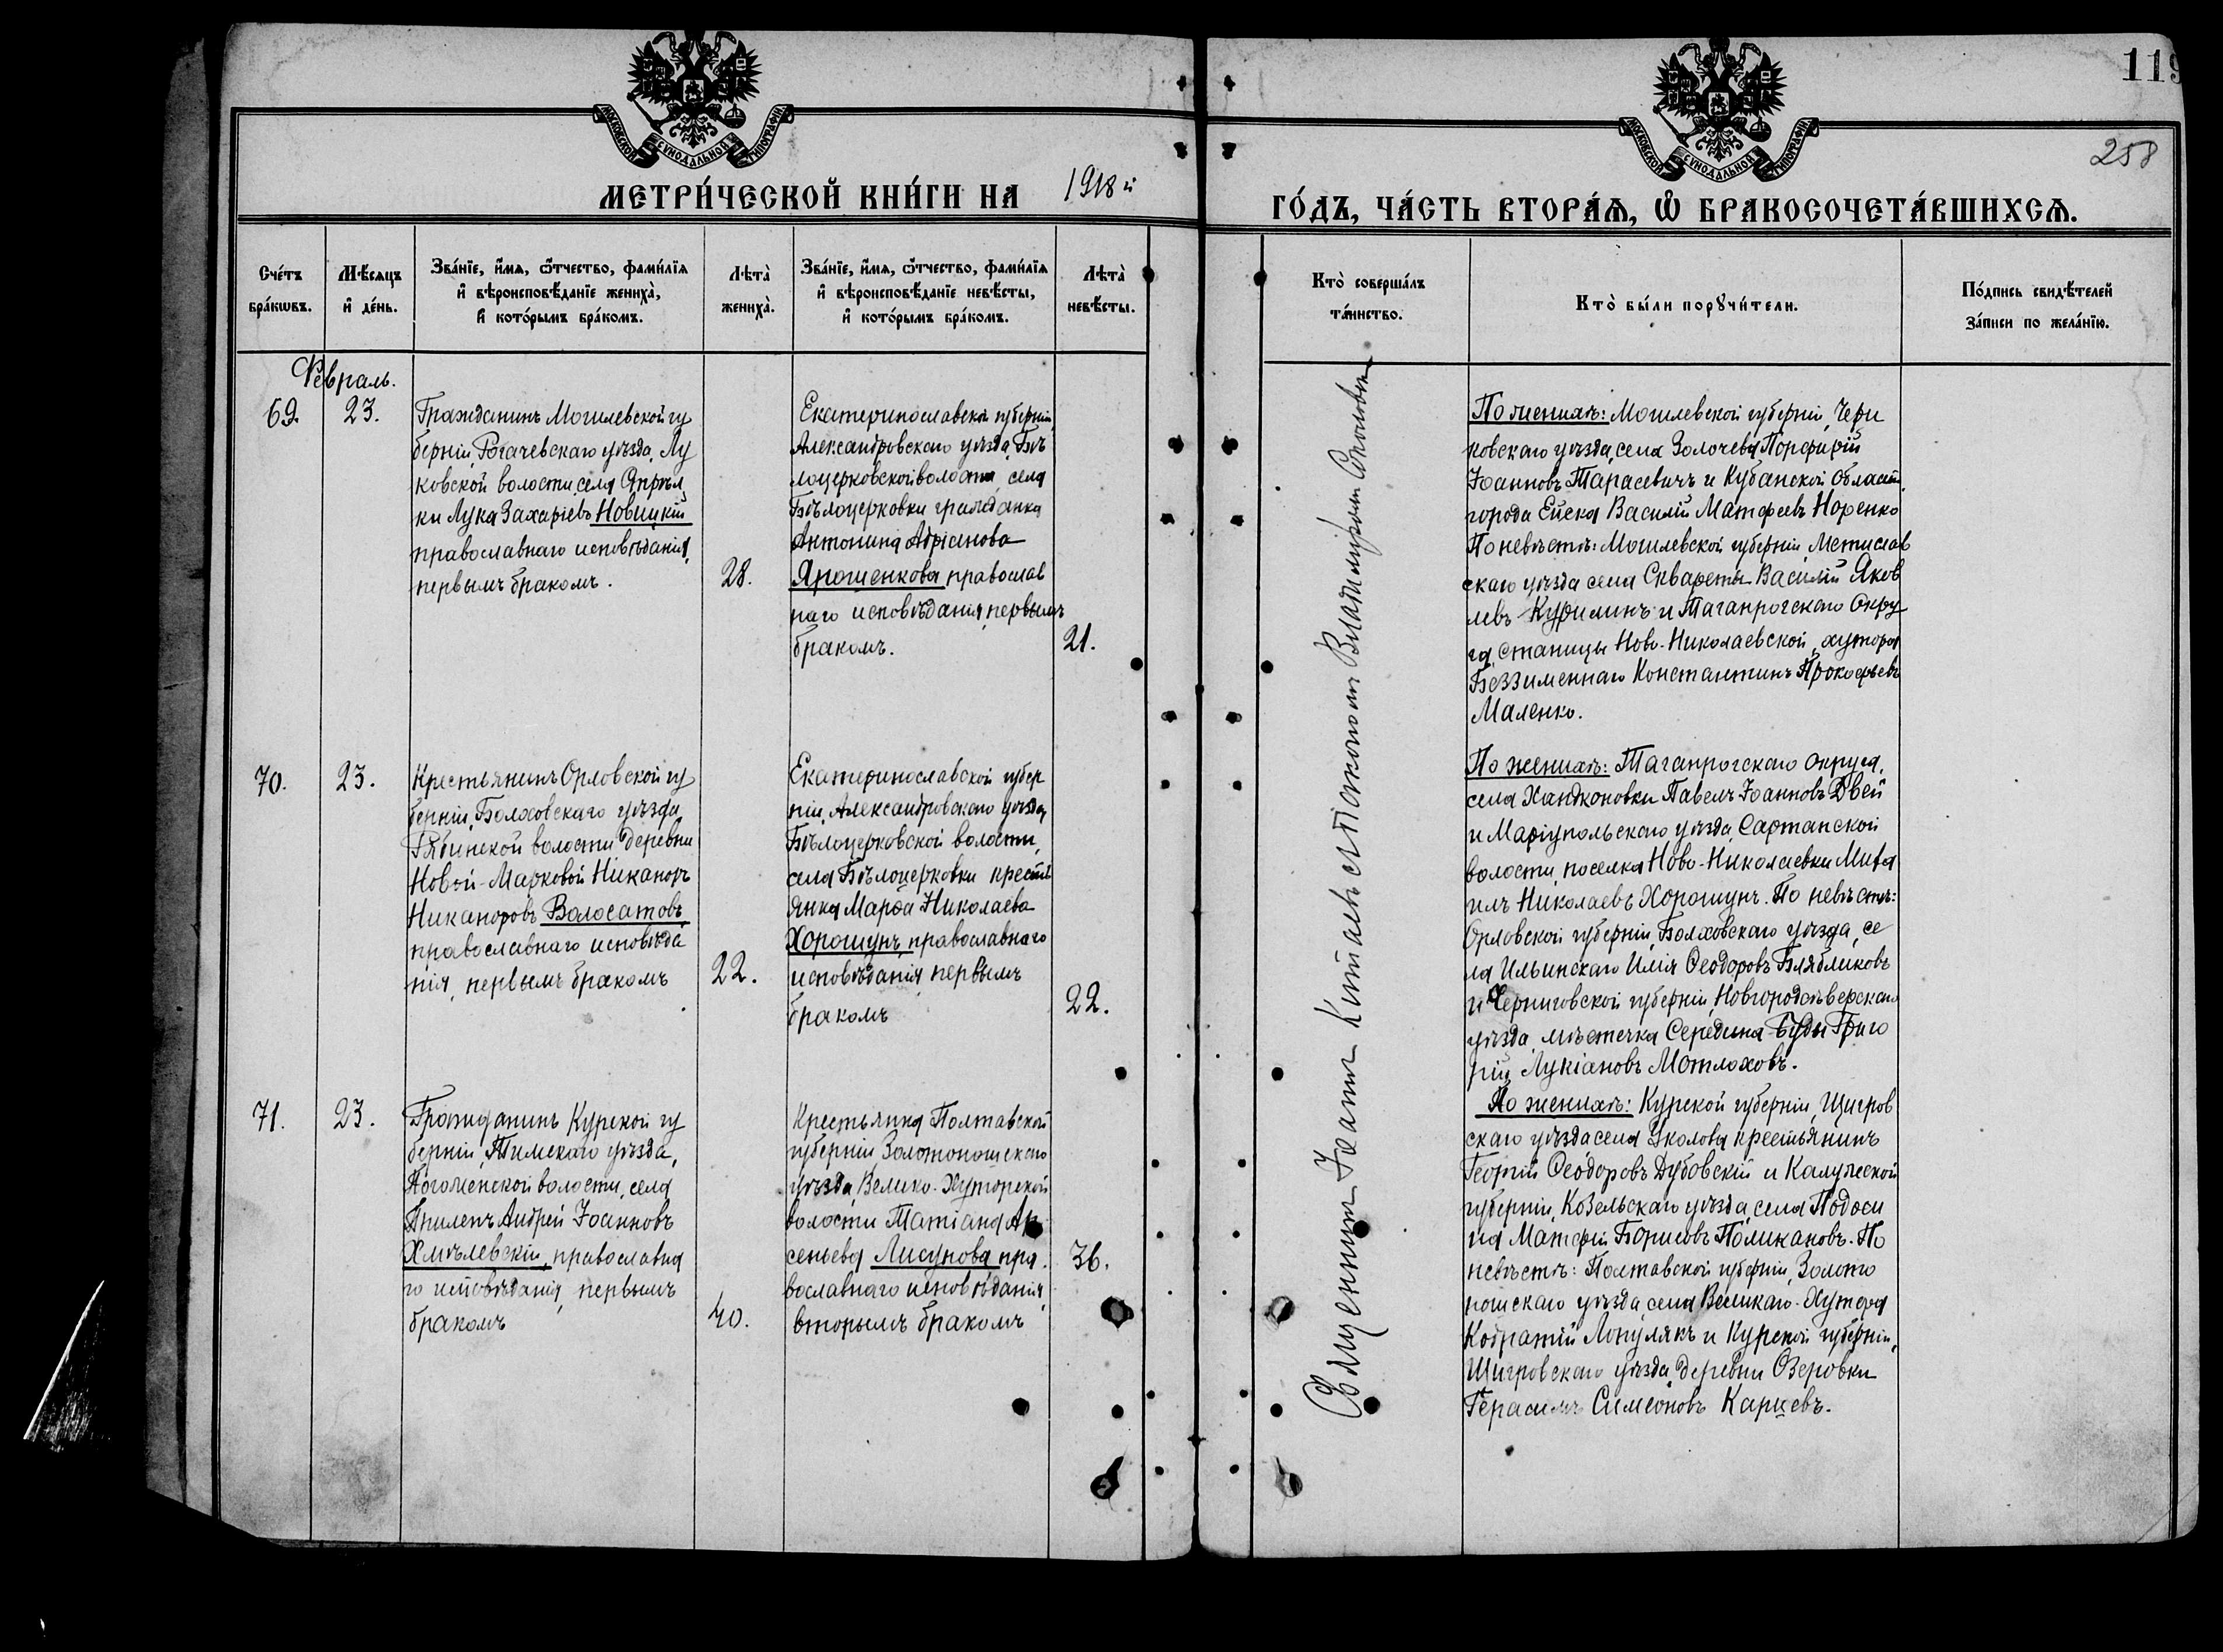 119
258
МОСКОВСКОЙ СѴНОДАЛЬНОЙ ТИПОГРАФІИ
МОСКОВСКОЙ СѴНОДАЛЬНОЙ ТИПОГРАФІИ
МЕТРИ́ЧЕСКОЙ КНИ́ГИ НА 1918й
ГО́ДЪ, ЧА́СТЬ ВТОРА́Ѧ, Ѡ҆ БРАКОСОЧЕТА́ВШИХСѦ.
Сче́тъ
бра́кѡвъ.
Мѣ́сяцъ
и҆ де́нь.
Зва́нїе, и҆́мѧ, ѻ҆́тчество, фамѝлїѧ
и҆ вѣроисповѣ́данїе жениха̀,
и҆ кото́рымъ бра́комъ.
Лѣта̀
жениха̀.
Зва́нїе, и҆́мѧ, ѻ҆́тчество, фамѝлїѧ
и҆ вѣроисповѣ́данїе невѣ́сты,
и҆ кото́рымъ бра́комъ.
Лѣта̀
невѣ́сты.
Кто̀ соверша́лъ
та́инство.
Кто̀ бы́ли порꙋчи́тели.
По́дпись свидѣ́телей
за́писи по жела́нїю.
Февраль.
69.
23.
Гражданинъ Могилевской гу
берніи, Рогачевскаго уѣзда, Лу
ковской волости, села
ки Лука Захаріевъ Новицкій
православнаго исповѣданія,
первымъ бракомъ.
28.
Екатеринославской губерніи,
Александровскаго уѣзда, Бѣ
лоцерковской волости, села
Бѣлоцерковки гражданка
Антонина Адріанова
Ярошенкова православ
наго исповѣданія, первымъ
бракомъ.
21.
Священникъ Іоаннъ Китаевъ съ Псаломщикомъ Владиміромъ
По женихѣ: Могилевской губерніи, Чери
ковскаго уѣзда, села Золочева Порфирій
Іоанновъ Тарасевичъ и Кубанской области
города Ейска Василій Матфеевъ Норенко
По невѣстѣ: Могилевской губерніи Мстислав
скаго уѣзда села Василій Яков
левъ Курилинъ и Таганрогскаго Окру
га, станицы Ново-Николаевской, хутора
Беззименнаго Константинъ Прокофьевъ
Маленко.
70.
23.
Крестьянинъ Орловской гу
берніи, Болховскаго уѣзда,
Рябинской волости деревни
Новой-Марковой Никаноръ
Никаноровъ Волосатовъ
православнаго исповѣда
нія, первымъ бракомъ
22.
Екатеринославской губер
ніи, Александровскаго уѣзда,
Бѣлоцерковской волости,
села Бѣлоцерковки кресть
янка Марѳа Николаева
Хорошунъ православнаго
исповѣданія первымъ
бракомъ
22.
По женихѣ: Таганрогскаго округа,
села Ханджоновки Павелъ Іоанновъ Двей
и Маріупольскаго уѣзда Сартанской
волости поселка Ново-Николаевки Миха
илъ Николаевъ Хорошунъ. По невѣстѣ:
Орловской губерніи, Болховскаго уѣзда, се
ла Ильинскаго Илія Ѳеодоровъ Блябликовъ
и Черниговской губерніи, Новгородсѣверскаго
уѣзда, мѣстечка Середина Буды Григо
рій Лукіановъ Мотлоховъ.
71.
23.
Гражданинъ Курской гу
берніи, Тимскаго уѣзда,
волости, села
Гнилецъ Андрей Іоанновъ
Хмѣлевскій, православна
го исповѣданія, первымъ
бракомъ
40.
Крестьянка Полтавской
губерніи Золотоношскаго
уѣзда Велико-Хуторской
волости Татіана Ар
сеньева Лисунова пра
вославнаго исповѣданія,
вторымъ бракомъ
36.
По женихѣ: Курской губерніи, Щигров
скаго уѣзда села Уколова крестьянинъ
Георгій Ѳеодоровъ Дубовскій и Калужской
губерніи, Козельскаго уѣзда, села
Матфій Борисовъ Поликановъ. По
невѣстѣ: Полтавской губерніи, Золото
ношскаго уѣзда села Великаго-Хутора
Кодратій Лопулякъ и Курской губерніи,
Щигровскаго уѣзда, деревни Озеровки
Герасимъ Симеоновъ Карцевъ.